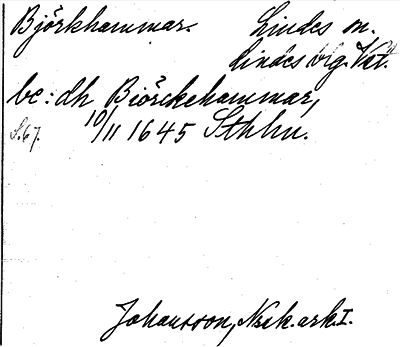 Björkhammar. Lindes sn.
Lindes blg. Vst.
bc: dh Biörckehammar,
S.67. 10/11 1645 Sthlm.
Johansson, Nsk. ark. I.